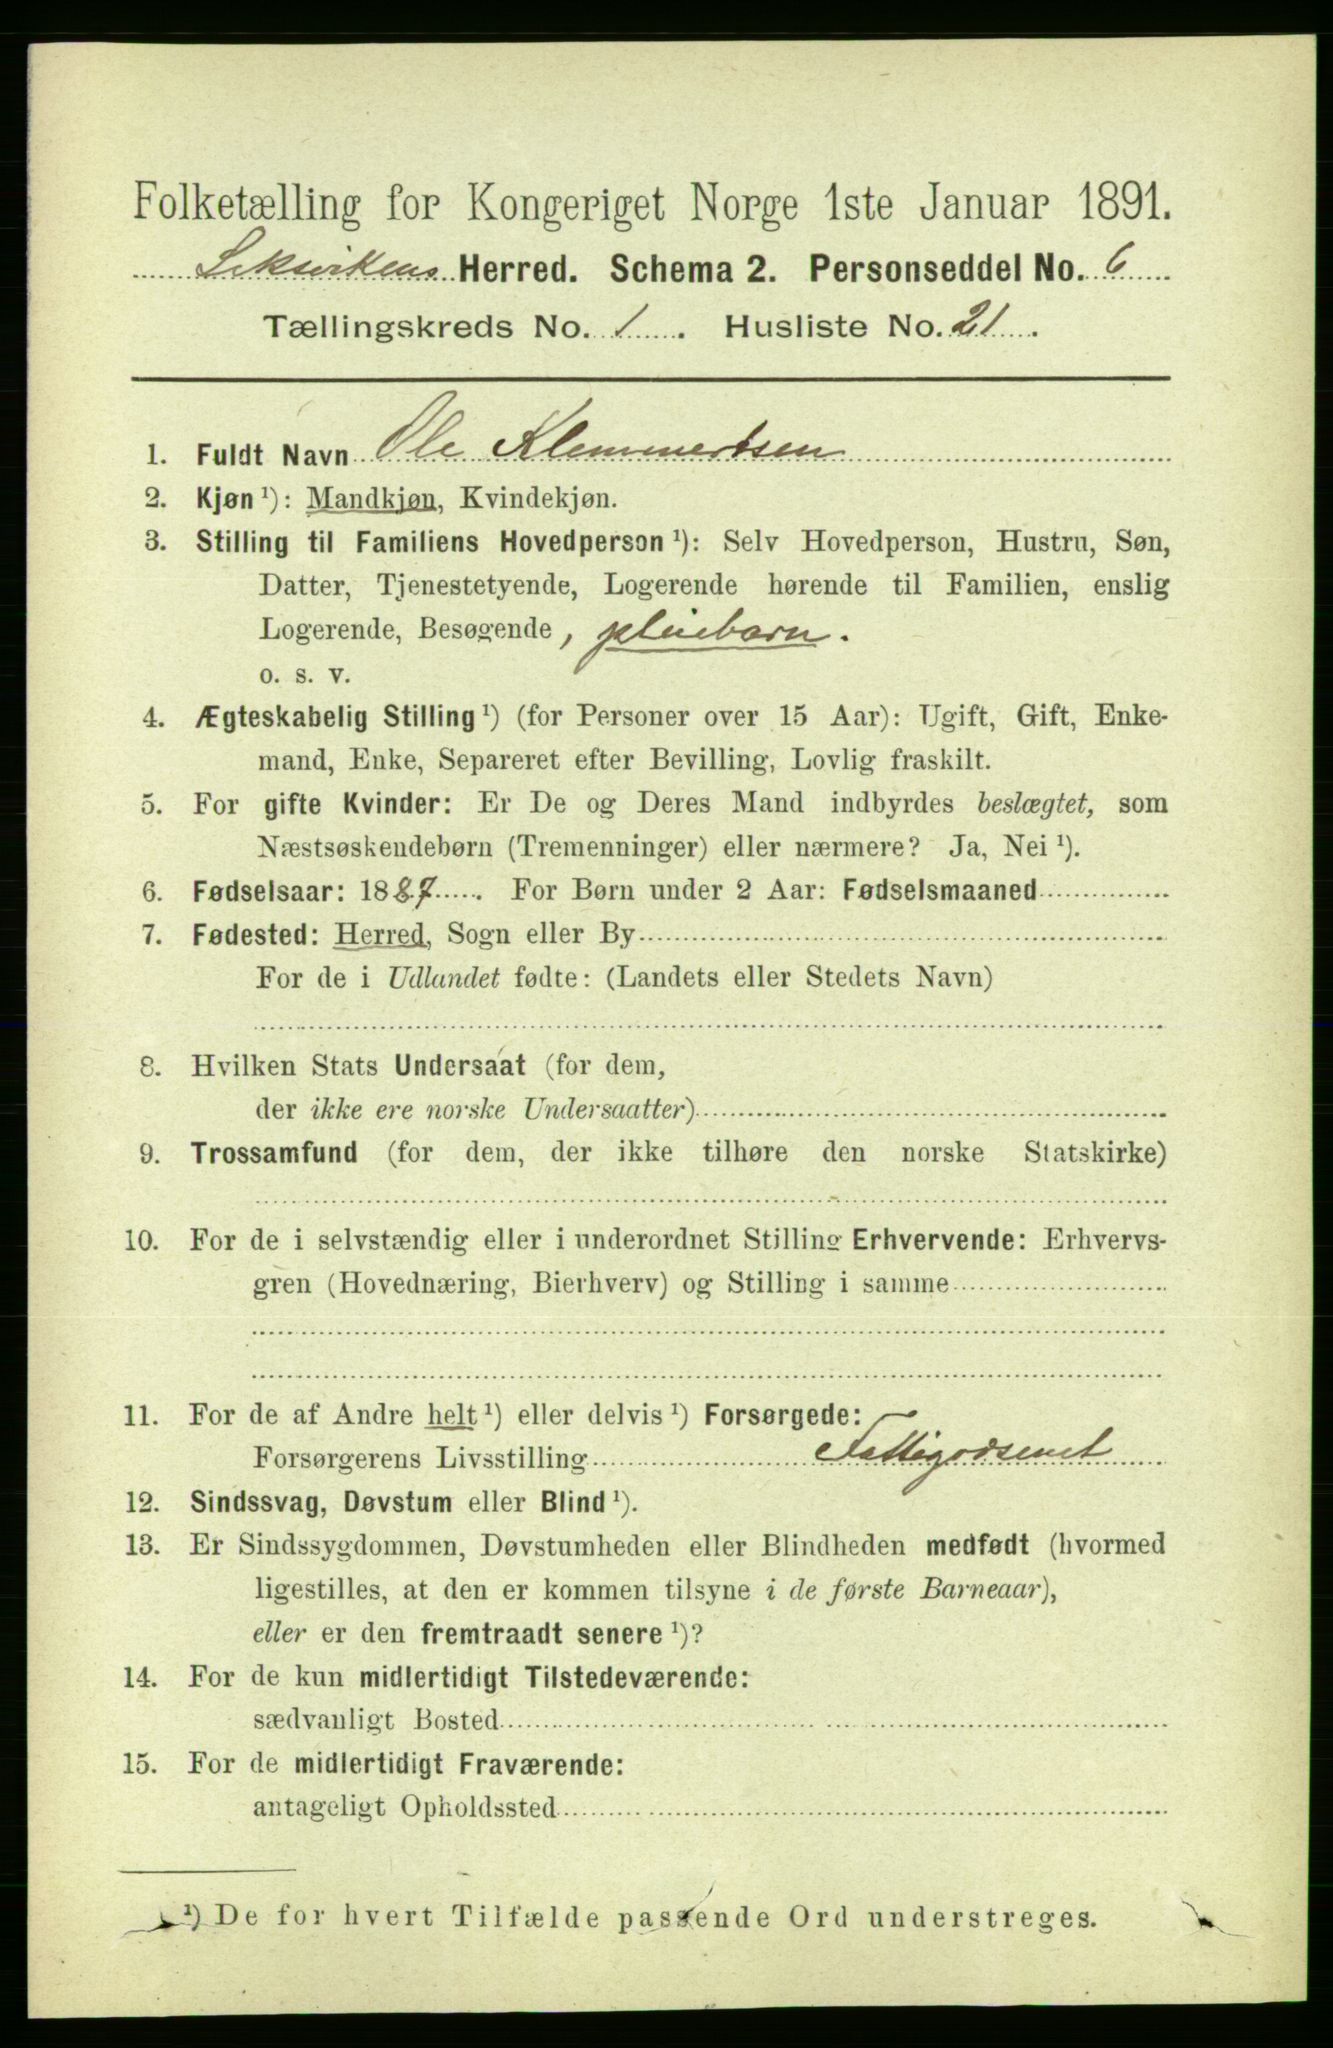 Folketælling for Kongeriget Norge 1ste Januar 1891.
Leksvikens Herred. Schema 2. Personseddel No. 6
Tællingskreds No. 1. Husliste No. 21.
1. Fuldt Navn Ole Klemmertsen
2. Kjøn ¹): Mandkjøn, Kvindekjøn.
3. Stilling til Familiens Hovedperson ¹): Selv Hovedperson, Hustru, Søn,
Datter, Tjenestetyende, Logerende hørende til Familien, enslig
Logerende, Besøgende, pleiebarn.
o. s. v.
4. Ægteskabelig Stilling ¹) (for Personer over 15 Aar): Ugift, Gift, Enke-
mand, Enke, Separeret efter Bevilling, Lovlig fraskilt.
5. For gifte Kvinder: Er De og Deres Mand indbyrdes beslægtet, som
Næstsøskendebørn (Tremenninger) eller nærmere? Ja, Nei ¹).
6. Fødselsaar: 1887. For Børn under 2 Aar: Fødselsmaaned
7. Fødested: Herred, Sogn eller By
For de i Udlandet fødte: (Landets eller Stedets Navn)
8. Hvilken Stats Undersaat (for dem,
der ikke ere norske Undersaatter)
9. Trossamfund (for dem, der ikke tilhøre den norske Statskirke)
10. For de i selvstændig eller i underordnet Stilling Erhvervende: Erhvervs-
gren (Hovednæring, Bierhverv) og Stilling i samme
11. For de af Andre helt ¹) eller delvis ¹) Forsørgede:
Forsørgerens Livsstilling Fattigvæsenet
12. Sindssvag, Døvstum eller Blind ¹).
13. Er Sindssygdommen, Døvstumheden eller Blindheden medfødt (hvormed
ligestilles, at den er kommen tilsyne i de første Barneaar),
eller er den fremtraadt senere ¹)?
14. For de kun midlertidigt Tilstedeværende:
sædvanligt Bosted
15. For de midlertidigt Fraværende:
antageligt Opholdssted
¹) De for hvert Tilfælde passende Ord understreges.